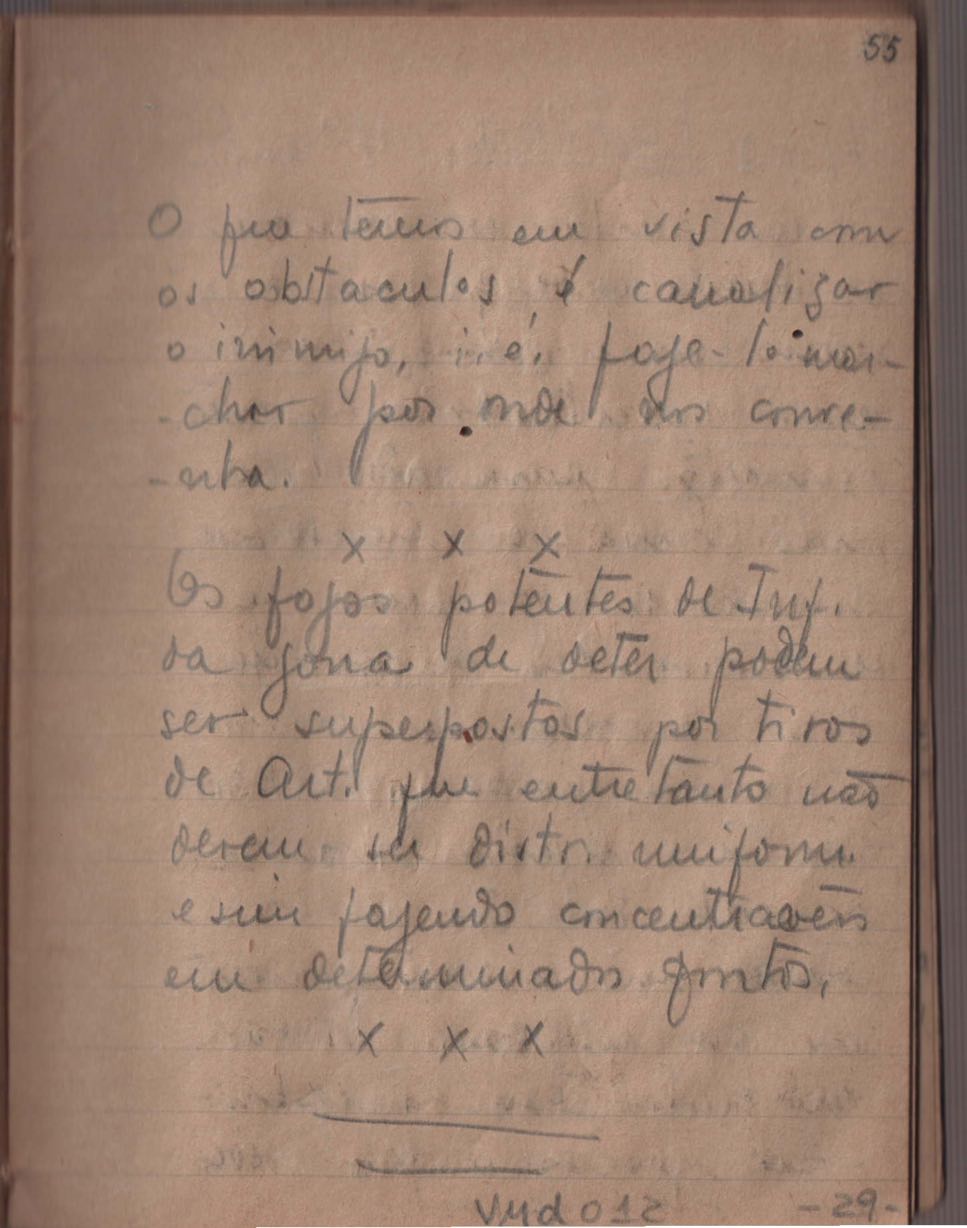 55
O que temos em vista com
os obstaculos, é canalizar
o inimigo, i. é, faze-lo mar-
-char por onde nos conve-
-nha.
x x x
Os fogos potentes de Inf.
da zona de deter podem
ser superpostos por tiros
de Art. que entretanto não
devem ser distri. uniform.
e sim fazendo concentracões
em determinados pontos.
x x x
- 29 -